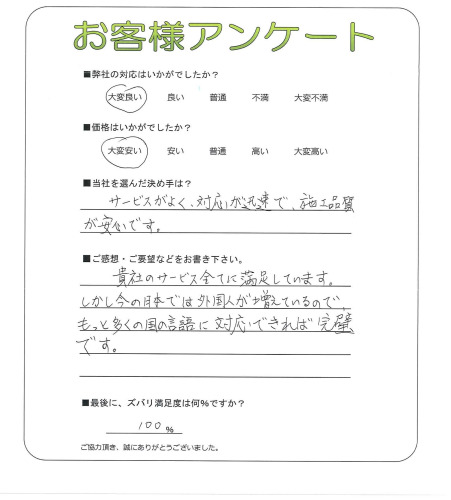 お客様アンケート
■弊社の対応はいかがでしたか？
大変良い 良い 普通 不満 大変不満
■価格はいかがでしたか？
大変安い 安い 普通 高い 大変高い
■当社を選んだ決め手は？
サービスがよく、対応が迅速で、施工品質
が安心です。
■ご感想・ご要望などをお書き下さい。
貴社のサービス全てに満足しています。
しかし今の日本では外国人が増えているので、
もっと多くの国の言語に対応できれば完璧
です。
■最後に、ズバリ満足度は何%ですか？
100 %
ご協力頂き、誠にありがとうございました。